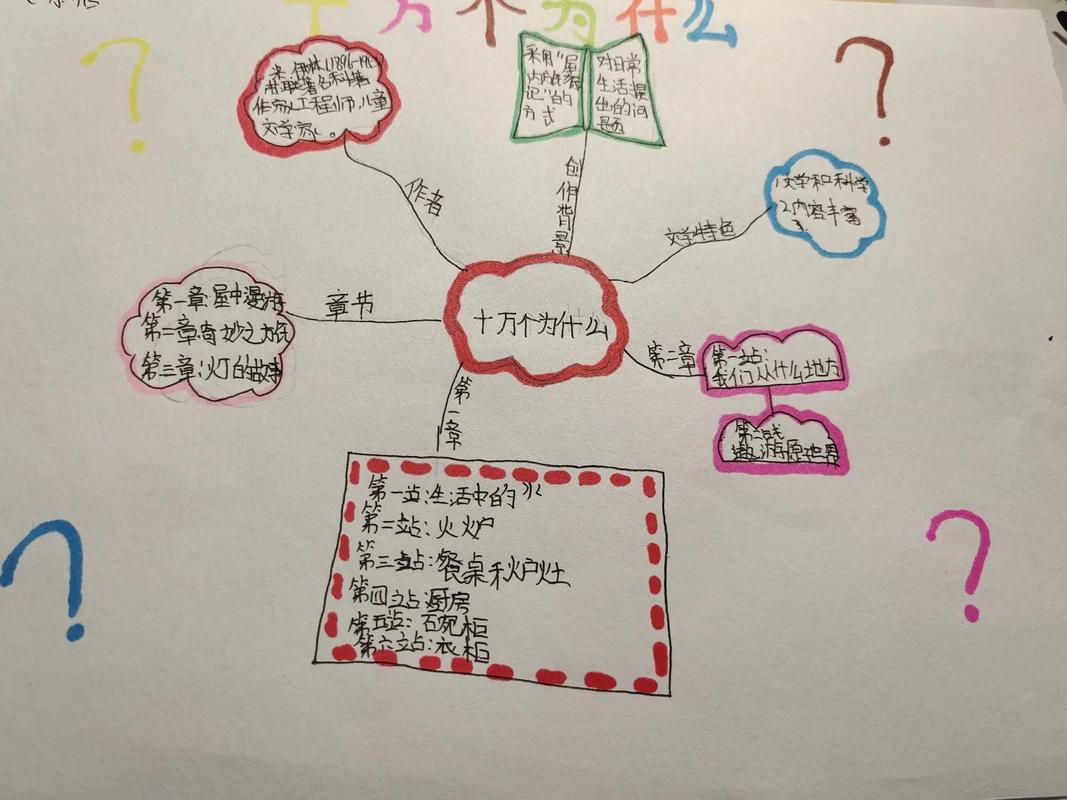 十万个为什么
米·伊林(1896-19
苏联著名科普
作家,工程师,儿童
文学家。
作者
采用"屋
内旅行
记"的
方式
对日常
生活提
出的问
题
创作背景
1文学和科学
2内容丰富
3.
文学特色
第一章:屋中漫游
第二章:奇妙之旅
第三章:灯的故事
章节
十万个为什么
第二章
第一站:
我们从什么地方
第二站
遨游原世界
第一章
第一站:生活中的水
第二站:火炉
第三站:餐桌和炉灶
第四站:厨房
第五站:碗柜
第六站:衣柜